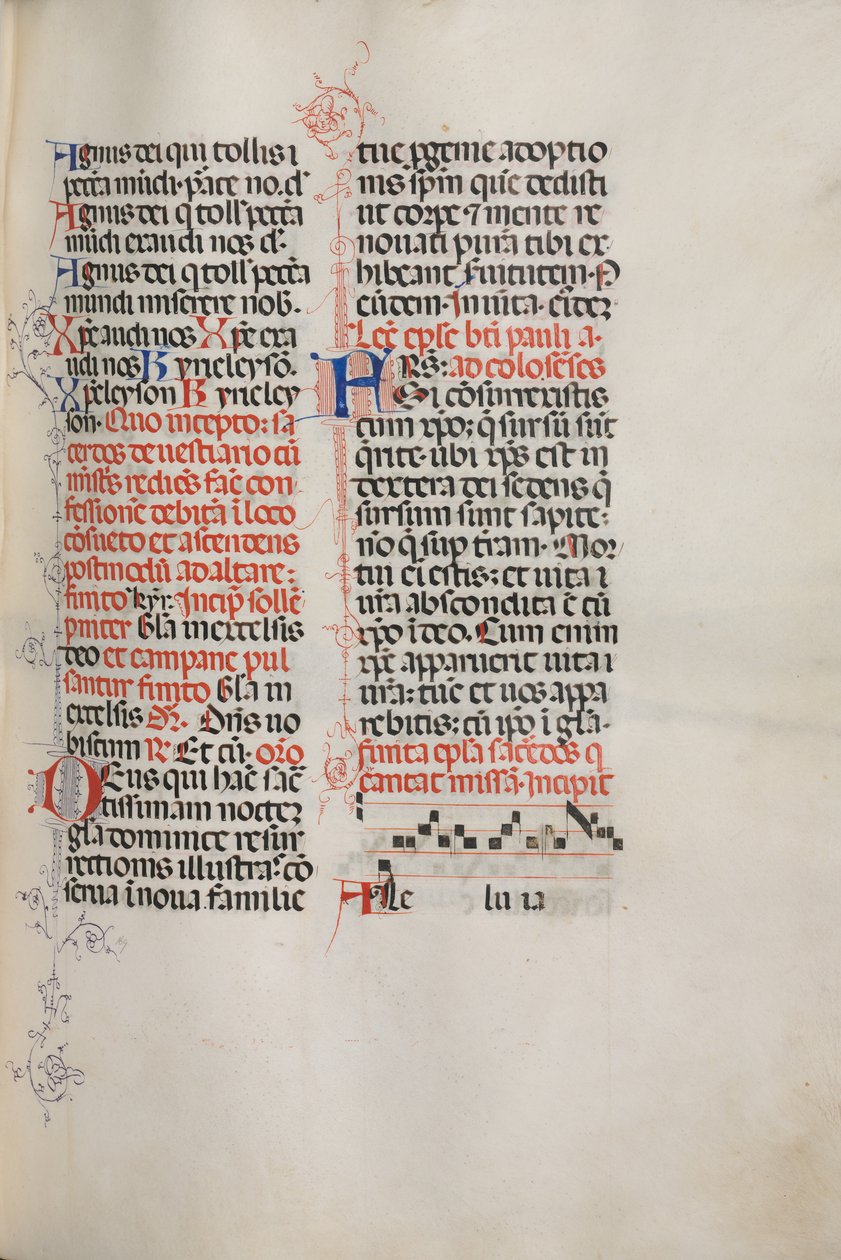 Agnus dei qui tollis i
pctā mūdi· p̄ace no. dn̄
Agnus dei q̄ toll' pctā
mūdi exaudi nos dn̄·
Agnus dei q̄ toll' pctā
mundi miserere nob̄.
Xp̄e audi nos Xp̄e exa
udi nos Kyrieleysō.
Xp̄eleyson Kyrieley
son· Quo incepto: sa
cerdos de uestiario cū
mīst's rediēs fac̄ con
fessionē debitā ī loco
cōsueto et ascendens
postmodū ad altare:
finito kyr̄: Incip̄ solle
pniter Gl̄a in excelsis
deo et campane pul
santur finito Gl̄a in
excelsis Dn̄s uo
biscum R̄ Et cū· or̄o
Deus qui hāc sac̄
tissimam noctez
gl̄a dominice resur
rectionis illustras: cō
serua ī noua familie
tue p̄genie adoptio
nis sp̄m quē dedisti
ut corp̄e ⁊ mente re
nouati purā tibi ex·
hibeant suitutem· P
eūdem· In uīta· eīdez
Lec̄ ep̄le bt̄i pauli a·
ad colosēses
Si cōsurrexistis
cum xp̄o; q̄ sursū sūt
q̄rite· ubi xp̄s est in
dextera dei sedens q̄
sursum sunt sapite:
nō q̄ sup̄ tr̄am· Mor
tui eī estis: et uita i
ur̄a abscondita ē cū
xp̄o ī deo. Cum enim
xp̄c apparuerit uita i
ur̄a: tūc et uos appa
rebitis: cū ip̄o ī gl̄a·
finita ep̄la sac̄dos q̄
cantat missā· Incipit
Alle lu ia